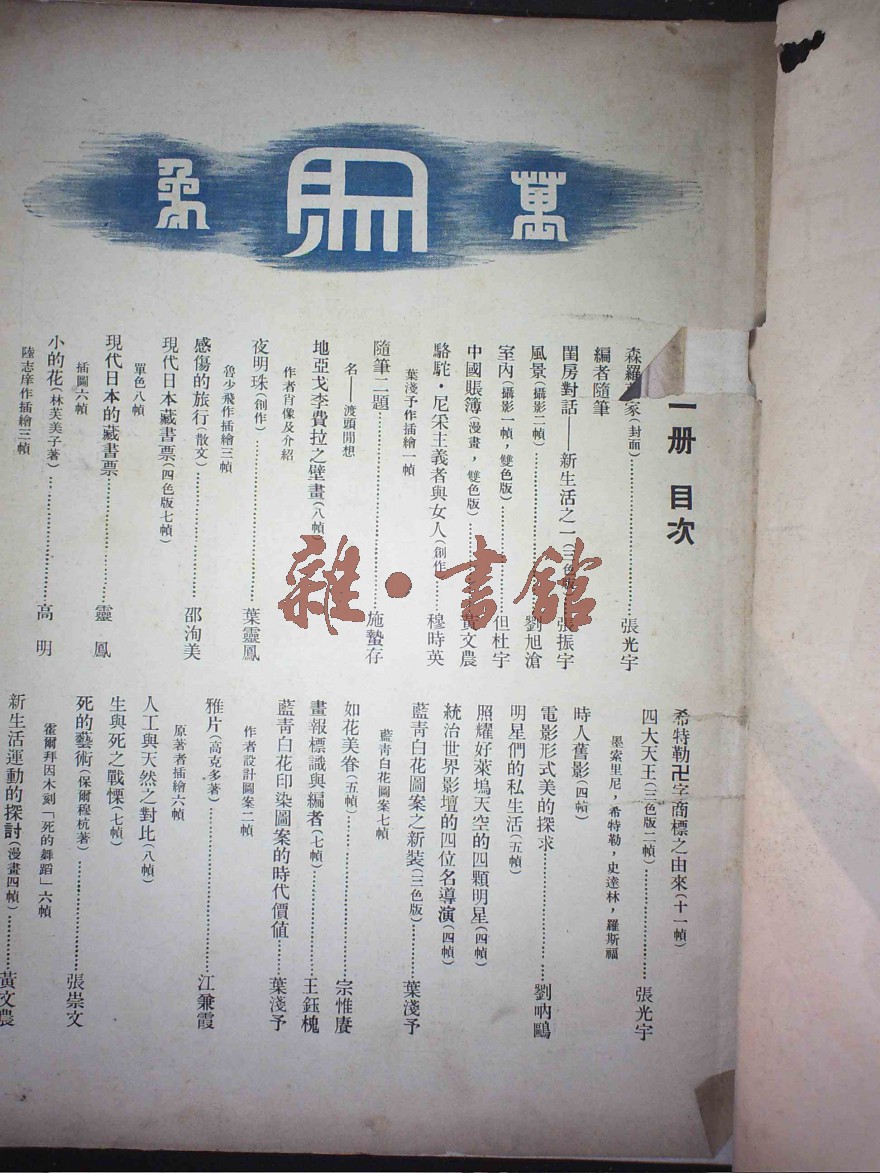 萬象
一册 目次
森羅 家(封面)……張光宇
編者隨筆
閨房對話——新生活之一(三色版)張振宇
風景(攝影二幀)……劉旭滄
室內(攝影一幀,雙色版)……但杜宇
中國賬簿(漫畫,雙色版)……黃文農
駱駝·尼采主義者與女人(創作)……穆時英
葉淺予作插繪一幀
隨筆二題……施蟄存
名——渡頭閒想
地亞戈李費拉之壁畫(八幀)
作者肖像及介紹
夜明珠(創作)……葉靈鳳
魯少飛作插繪三幀
感傷的旅行(散文)……邵洵美
現代日本藏書票(四色版七幀)
單色八幀
現代日本的藏書票……靈鳳
插圖六幀
小的花(林芙美子著)……高明
陸志庠作插繪三幀
希特勒卍字商標之由來(十一幀)
四大天王(三色版二幀)……張光宇
墨索里尼,希特勒,史達林,羅斯福
時人舊影(四幀)
電影形式美的探求……劉吶鷗
明星們的私生活(五幀)
照耀好萊塢天空的四顆明星(四幀)
統治世界影壇的四位名導演(四幀)
藍青白花圖案之新裝(三色版)……葉淺予
藍青白花圖案七幀
如花美眷(五幀)……宗惟賡
畫報標識與編者(七幀)……王鈺槐
藍青白花印染圖案的時代價值……葉淺予
作者設計圖案二幀
雅片(高克多著)……江兼霞
原著者插繪六幀
人工與天然之對比(八幀)
生與死之戰慄(七幀)
死的藝術(保爾穆杭著)……張崇文
霍爾拜因木刻「死的舞蹈」六幀
新生活運動的探討(漫畫四幀)……黃文農
雜·書館